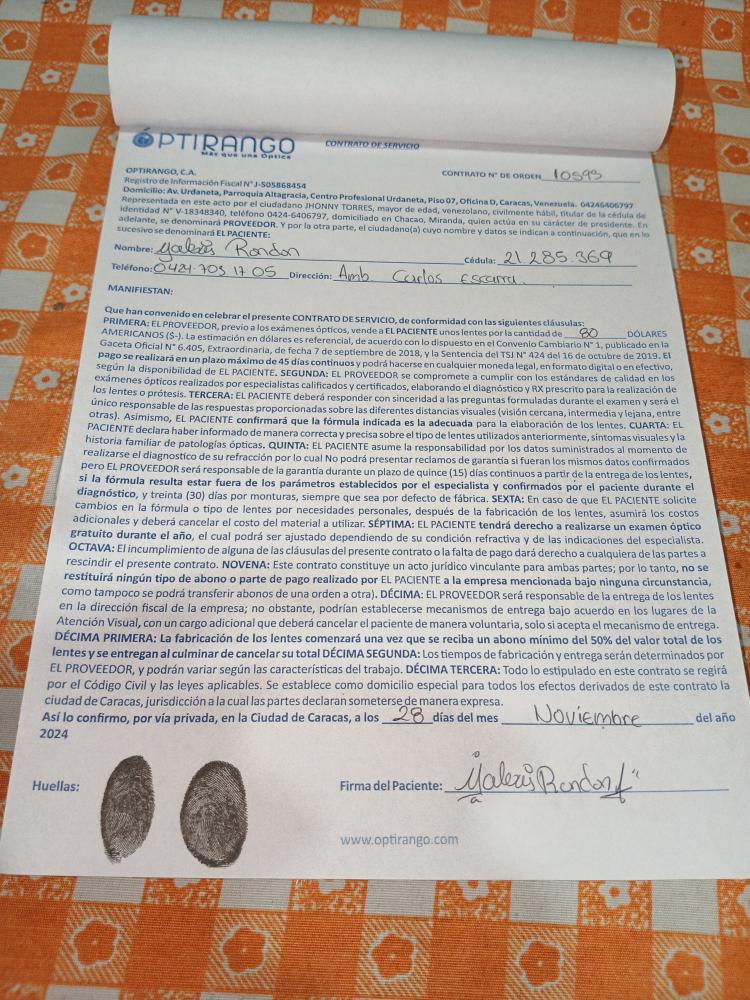 ÓPTIRANGO
Más que una Óptica
CONTRATO DE SERVICIO
CONTRATO N° DE ORDEN 10593
OPTIRANGO, C.A.
Registro de Información Fiscal N° J-505868454
Domicilio: Av. Urdaneta, Parroquia Altagracia, Centro Profesional Urdaneta, Piso 07, Oficina D, Caracas, Venezuela. 04246406797
Representada en este acto por el ciudadano JHONNY TORRES, mayor de edad, venezolano, civilmente hábil, titular de la cédula de
identidad N° V-18348340, teléfono 0424-6406797, domiciliado en Chacao, Miranda, quien actúa en su carácter de presidente. En
adelante, se denominará PROVEEDOR. Y por la parte otra, el ciudadano(a) cuyo nombre y datos se indican a continuación, que en lo
sucesivo se denominará EL PACIENTE:
Nombre: Yalexis Rondon Cédula: 21.285.369
Teléfono: 0424.703 17 05 Dirección: Amb. Carlos Escarra.
MANIFIESTAN:
Que han convenido en celebrar el presente CONTRATO DE SERVICIO, de conformidad con las siguientes cláusulas:
PRIMERA: EL PROVEEDOR, previo a los exámenes ópticos, vende a EL PACIENTE unos lentes por la cantidad de 80 DÓLARES
AMERICANOS ($-). La estimación en dólares es referencial, de acuerdo con lo dispuesto en el Convenio Cambiario N° 1, publicado en la
Gaceta Oficial N° 6.405, Extraordinaria, de fecha 7 de septiembre de 2018, y la Sentencia del TSJ N° 424 del 16 de octubre de 2019. El
pago se realizará en un plazo máximo de 45 días continuos y podrá hacerse en cualquier moneda legal, en formato digital o en efectivo,
según la disponibilidad de EL PACIENTE. SEGUNDA: EL PROVEEDOR se compromete a cumplir con los estándares de calidad en los
exámenes ópticos realizados por especialistas calificados y certificados, elaborando el diagnóstico y RX prescrito para la realización de
los lentes o prótesis. TERCERA: EL PACIENTE deberá responder con sinceridad a las preguntas formuladas durante el examen y será el
único responsable de las respuestas proporcionadas sobre las diferentes distancias visuales (visión cercana, intermedia y lejana, entre
otras). Asimismo, EL PACIENTE confirmará que la fórmula indicada es la adecuada para la elaboración de los lentes. CUARTA: EL
PACIENTE declara haber informado de manera correcta y precisa sobre el tipo de lentes utilizados anteriormente, síntomas visuales y la
historia familiar de patologías ópticas. QUINTA: EL PACIENTE asume la responsabilidad por los datos suministrados al momento de
realizarse el diagnostico de su refracción por lo cual No podrá presentar reclamos de garantía si fueron los mismos datos confirmados
pero EL PROVEEDOR será responsable de la garantía durante un plazo de quince (15) días continuos a partir de la entrega de los lentes,
si la fórmula resulta estar fuera de los parámetros establecidos por el especialista y confirmados por el paciente durante el
diagnóstico, y treinta (30) días por monturas, siempre que sea por defecto de fábrica. SEXTA: En caso de que EL PACIENTE solicite
cambios en la fórmula o tipo de lentes por necesidades personales, después de la fabricación de los lentes, asumirá los costos
adicionales y deberá cancelar el costo del material a utilizar. SÉPTIMA: EL PACIENTE tendrá derecho a realizarse un examen óptico
gratuito durante el año, el cual podrá ser ajustado dependiendo de su condición refractiva y de las indicaciones del especialista.
OCTAVA: El incumplimiento de alguna de las cláusulas del presente contrato o la falta de pago dará derecho a cualquiera de las partes a
rescindir el presente contrato. NOVENA: Este contrato constituye un acto jurídico vinculante para ambas partes; por lo tanto, no se
restituirá ningún tipo de abono o parte de pago realizado por EL PACIENTE a la empresa mencionada bajo ninguna circunstancia,
como tampoco se podrá transferir abonos de una orden a otra). DÉCIMA: EL PROVEEDOR será responsable de la entrega de los lentes
en la dirección fiscal de la empresa; no obstante, podrían establecerse mecanismos de entrega bajo acuerdo en los lugares de la
Atención Visual, con un cargo adicional que deberá cancelar el paciente de manera voluntaria, solo si acepta el mecanismo de entrega.
DÉCIMA PRIMERA: La fabricación de los lentes comenzará una vez que se reciba un abono mínimo del 50% del valor total de los
lentes y se entregan al culminar de cancelar su total DÉCIMA SEGUNDA: Los tiempos de fabricación y entrega serán determinados por
EL PROVEEDOR, y podrán variar según las características del trabajo. DÉCIMA TERCERA: Todo lo estipulado en este contrato se regirá
por el Código Civil y las leyes aplicables. Se establece como domicilio especial para todos los efectos derivados de este contrato la
ciudad de Caracas, jurisdicción a la cual las partes declaran someterse de manera expresa.
Así lo confirmo, por vía privada, en la Ciudad de Caracas, a los 28 días del mes Noviembre del año
2024
Huellas:
Firma del Paciente: Yalexis Rondon
www.optirango.com